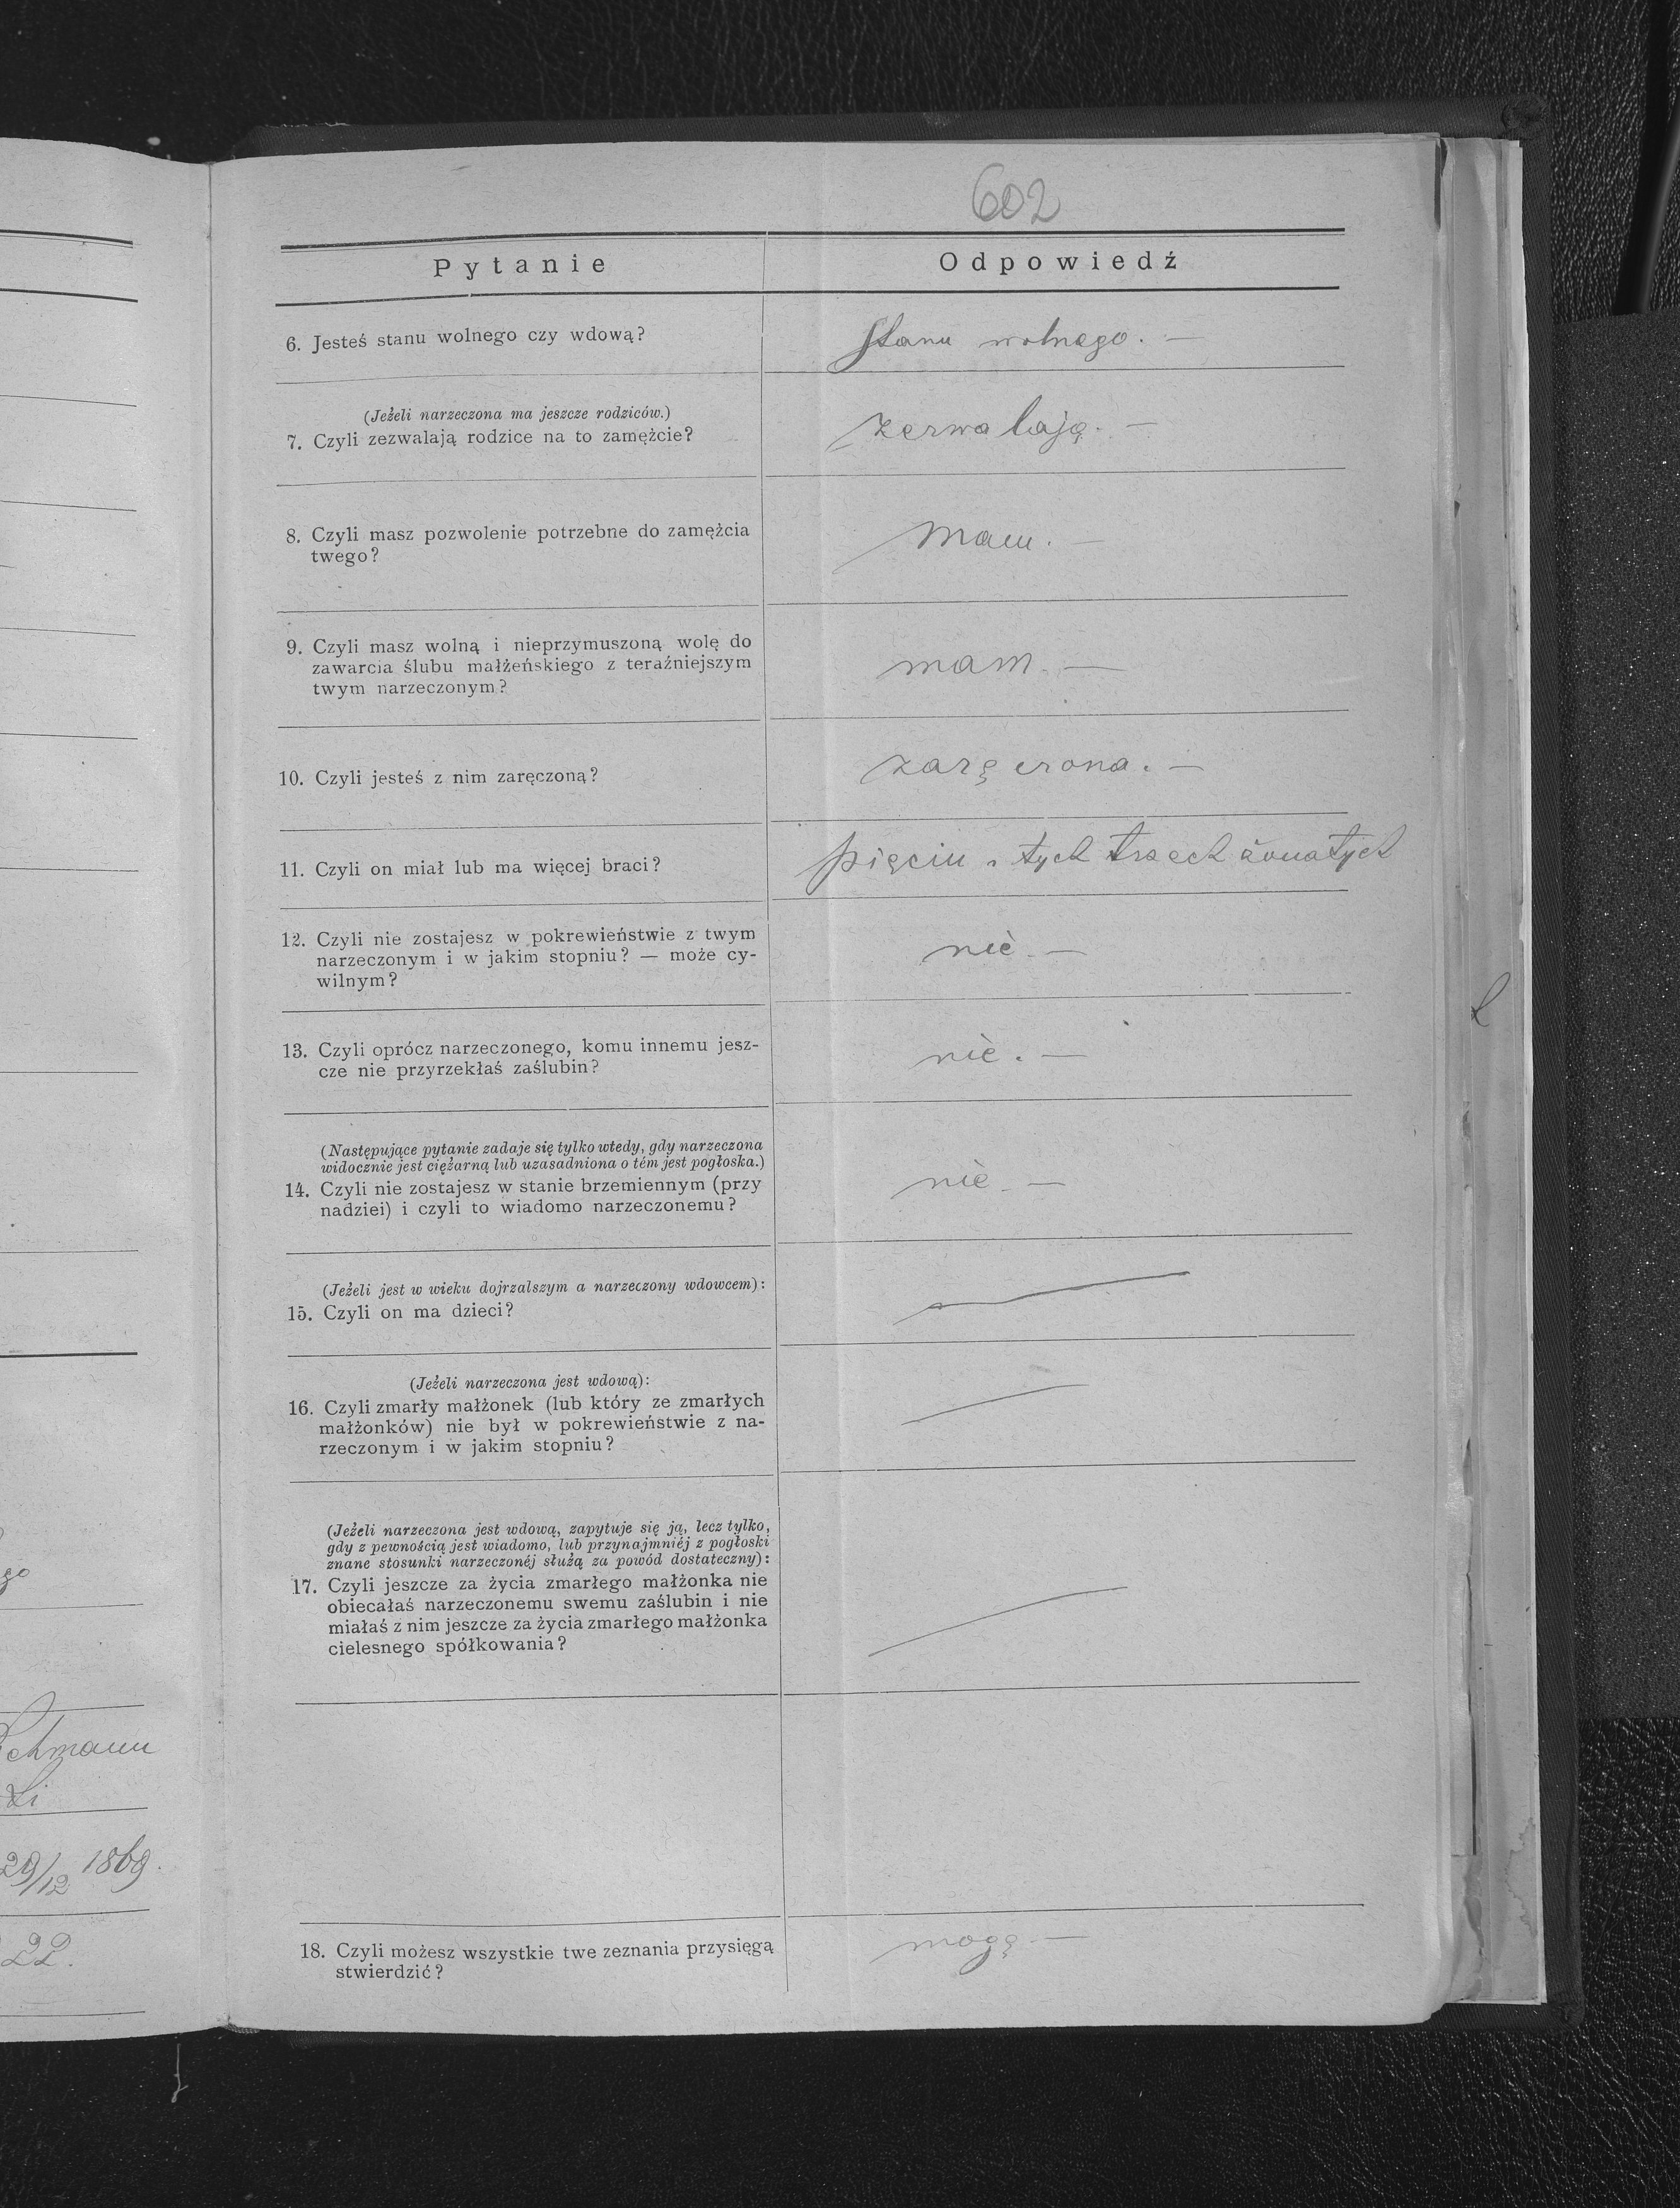 602
Pytanie Odpowiedź
6. Jesteś stanu wolnego czy wdową? Stanu wolnego. —
(Jeżeli narzeczona ma jeszcze rodziców.)
7. Czyli zezwalają rodzice na to zamężcie? zezwalają. —
8. Czyli masz pozwolenie potrzebne do zamężcia
twego?
mam. —
9. Czyli masz wolną i nieprzymuszoną wolę do
zawarcia ślubu małżeńskiego z teraźniejszym
twym narzeczonym?
mam. —
10. Czyli jesteś z nim zaręczoną? zaręczona. —
11. Czyli on miał lub ma więcej braci? pięciu z tych trzech żonatych
12. Czyli nie zostajesz w pokrewieństwie z twym
narzeczonym i w jakim stopniu? — może cy-
wilnym?
nie. —
13. Czyli oprócz narzeczonego, komu innemu jesz-
cze nie przyrzekłaś zaślubin?
nie. —
(Następujące pytanie zadaje się tylko wtedy, gdy narzeczona
widocznie jest ciężarną lub uzasadniona o tém jest pogłoska.)
14. Czyli nie zostajesz w stanie brzemiennym (przy
nadziei) i czyli to wiadomo narzeczonemu?
nie. —
(Jeżeli jest w wieku dojrzalszym a narzeczony wdowcem):
15. Czyli on ma dzieci?
(Jeżeli narzeczona jest wdową):
16. Czyli zmarły małżonek (lub który ze zmarłych
małżonków) nie był w pokrewieństwie z na-
rzeczonym i w jakim stopniu?
(Jeżeli narzeczona jest wdową, zapytuje się ją, lecz tylko,
gdy z pewnością jest wiadomo, lub przynajmniéj z pogłoski
znane stosunki narzeczonéj służą za powód dostateczny):
17. Czyli jeszcze za życia zmarłego małżonka nie
obiecałaś narzeczonemu swemu zaślubin i nie
miałaś z nim jeszcze za życia zmarłego małżonka
cielesnego spółkowania?
18. Czyli możesz wszystkie twe zeznania przysięgą
stwierdzić?
mogę. —
29/12 1869.
22.